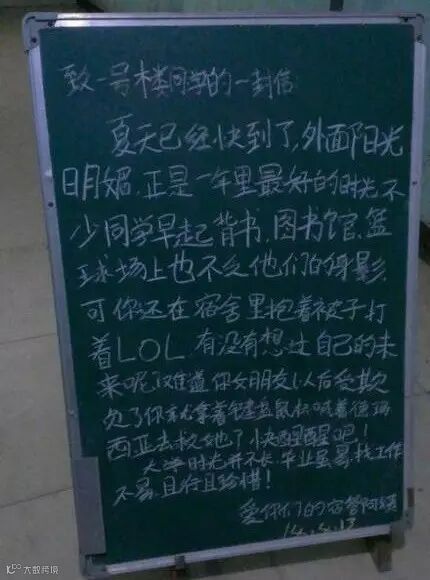 致一号楼同学的一封信:
夏天已经快到了,外面阳光
明媚,正是一年里最好的时光不
少同学早起背书,图书馆、篮
球场上也不乏他们的身影,
可你还在宿舍里抱着被子打
着LOL,有没有想过自己的未
来呢,难道你女朋友以后受欺
负了你就拿着键盘鼠标喊着德玛
西亚去救她了快醒醒吧!
大学时光并不长,毕业虽易,找工作
不易,且行且珍惜!
爱你们的宿管阿姨
大数跨境